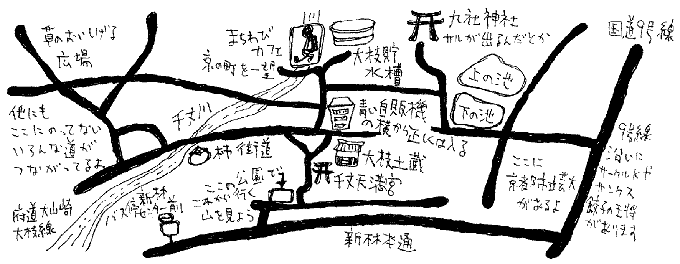 草のおいしげる
広場
まちわび
カフェ
京の町を一望
大枝貯
水槽
九社神社
サルが出るんだとか
国道9号線
上の池
下の池
千丈川
他にも
ここにのってない
いろんな道が
つながってるよ
青い自販機
の横から近くは入る
柿街道
大枝土蔵
千丈天満宮
ここの公園で
これから行く
山を見よう
ここに
京都があるよ
9号線
沿いに
サークルKや
サンクス
餃子の王将
があります
府道大山崎
大枝線
新林
バス停センター前
新林本通